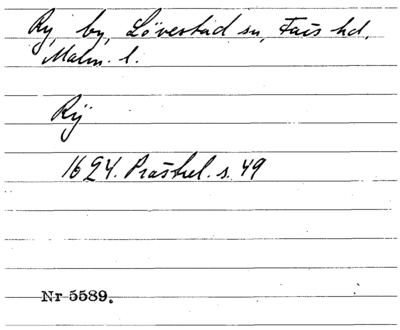 Ry, by, Lövestad sn, Färs hd,
Malm. l.
Rÿ
1624. Prästrel. s. 49
Nr 5589.